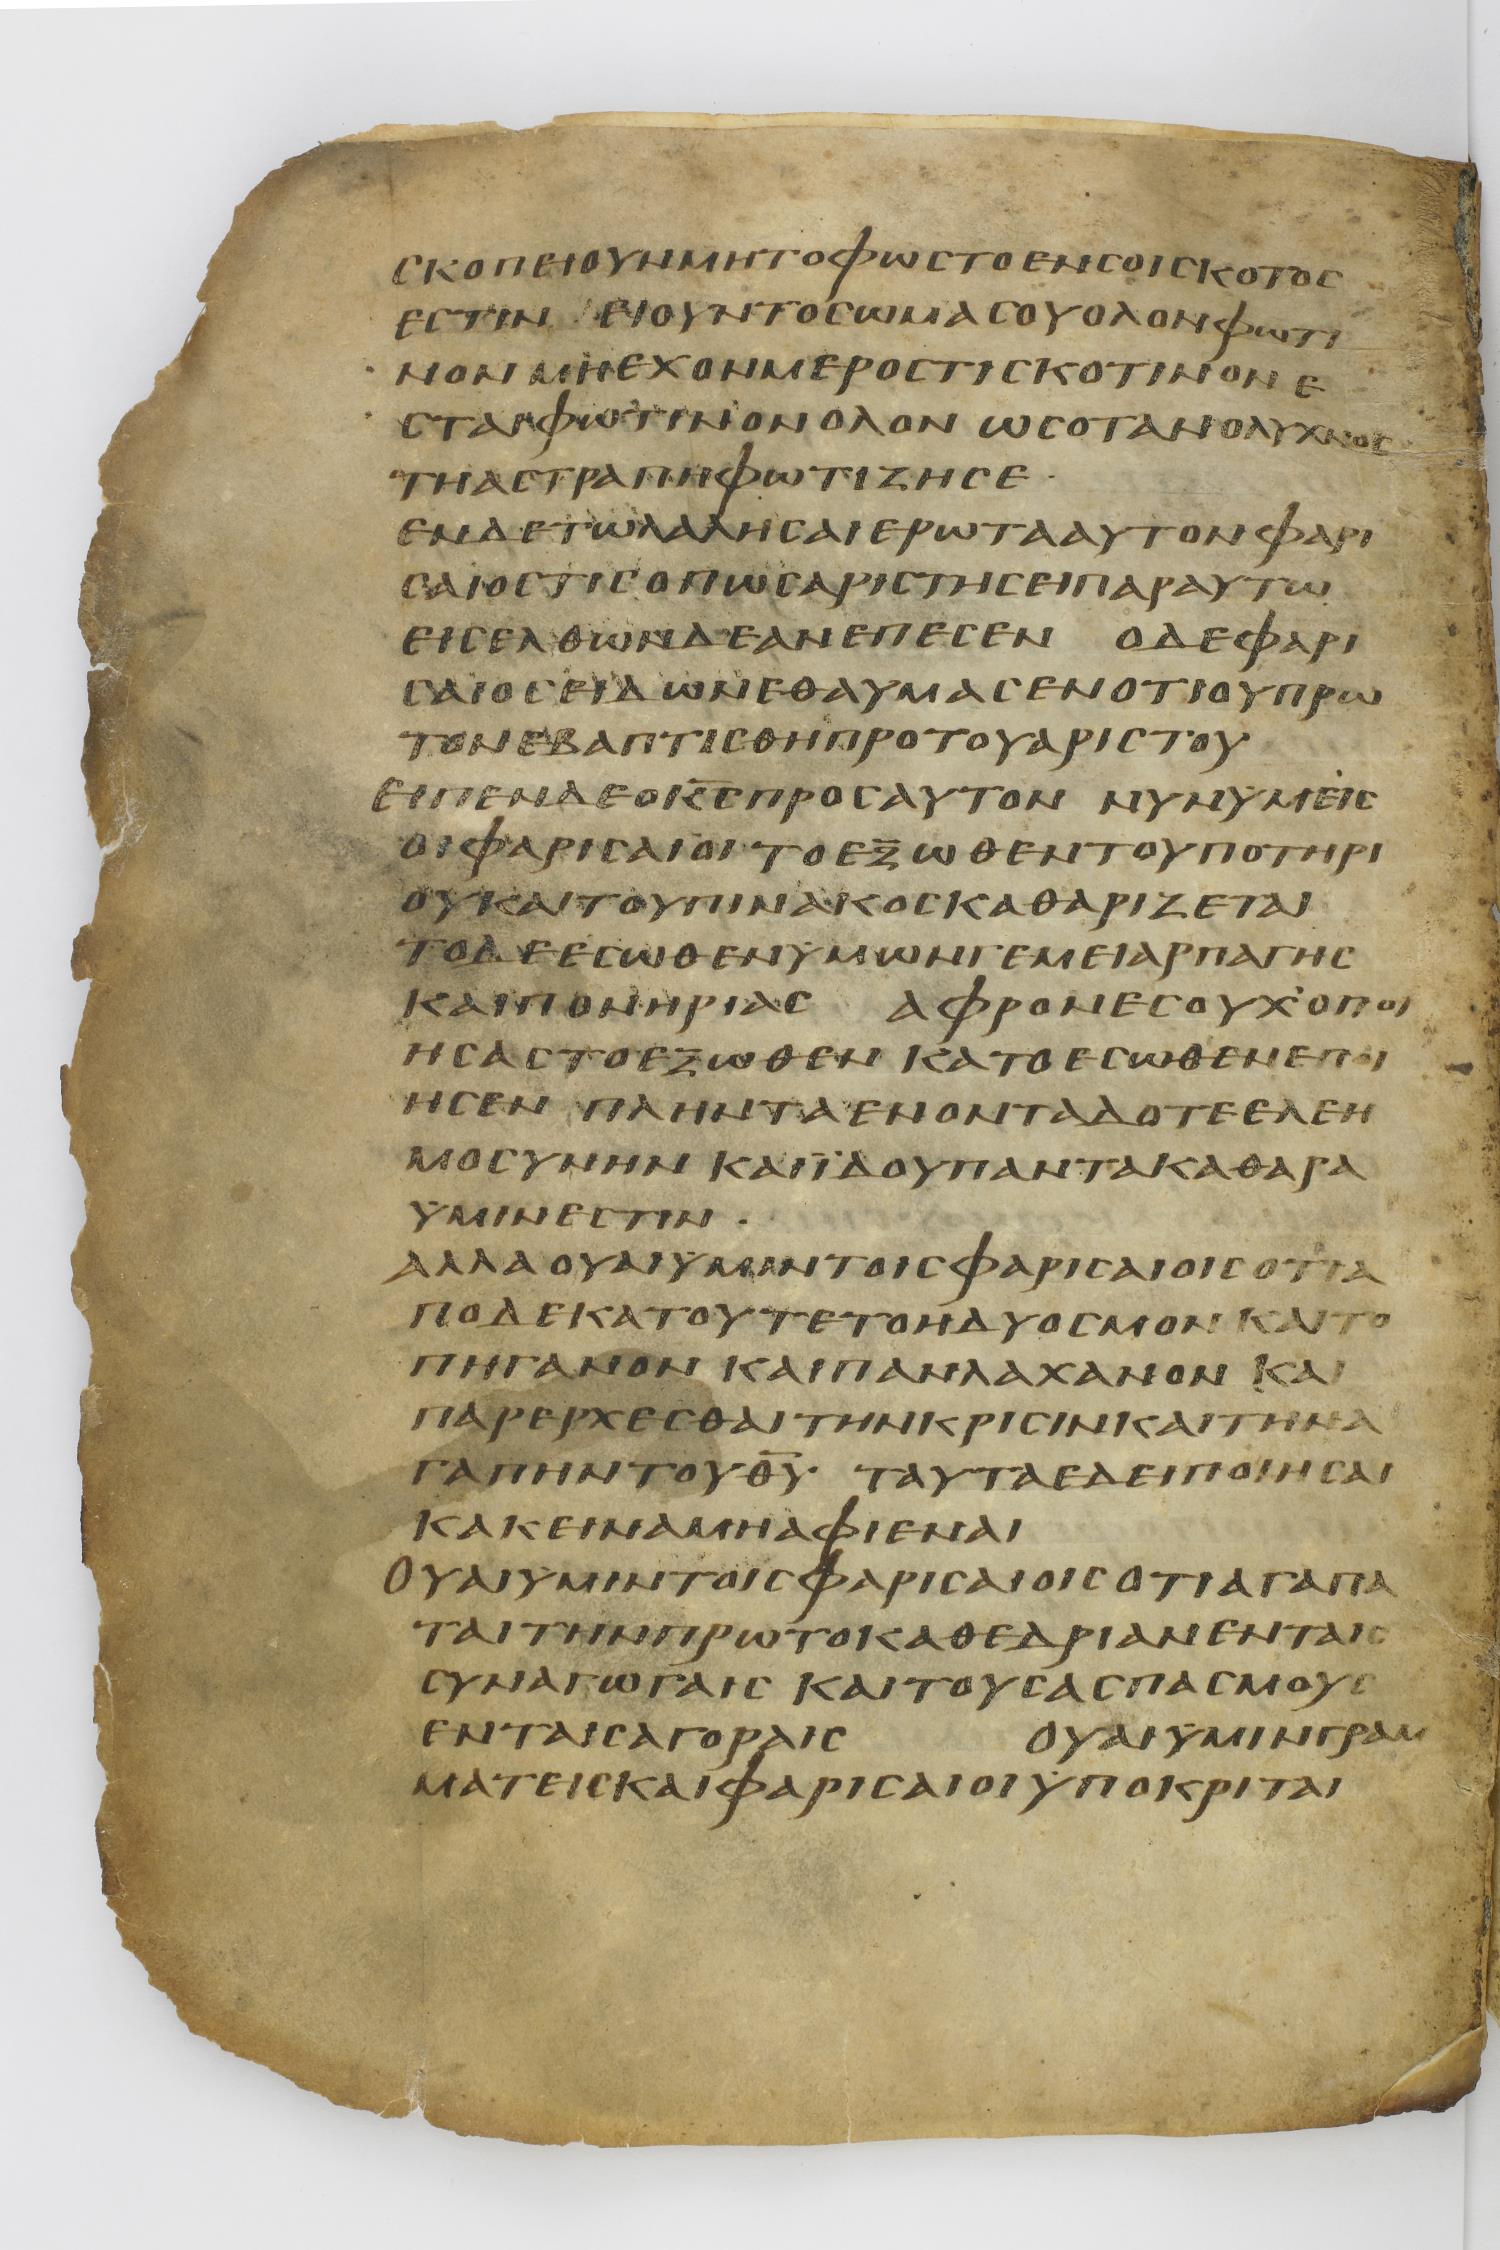 ϲκοπειουνμητοφωϲτοενϲοιϲκοτοϲ
εϲτιν ειουντοϲωμαϲουολονφωτι
νονμηεχονμεροϲτιϲκοτινονε
ϲταιφωτινονολον ωϲοτανολυχνοϲ
τηαϲτραπηφωτιζηϲε·
ενδετωλαληϲαιερωτααυτονφαρι
ϲαιοϲτιϲοπωϲαριϲτηϲειπαραυτω
ειϲελθωνδεανεπεϲεν οδεφαρι
ϲαιοϲειδωνεθαυμαϲενοτιουπρω
τονεβαπτιϲθηπροτουαριϲτου
ειπενδεοκ̅ϲ̅προϲαυτον νυνϋμειϲ
οιφαριϲαιοι τοεξωθεντουποτηρι
ουκαιτουπινακοϲκαθαριζεται
τοδεεϲωθενϋμωνγεμειαρπαγηϲ
καιπονηριαϲ αφρονεϲουχοποι
ηϲαϲτοεξωθεν κατοεϲωθενεποι
ηϲεν πληνταενονταδοτεελεη
μοϲυνην καιϊδουπαντακαθαρα
ϋμινεϲτιν·
αλλαουαιϋμιντοιϲφαριϲαιοιϲοτια
ποδεκατουτετοηδυοϲμον καιτο
πηγανον καιπανλαχανον και
παρερχεϲθαιτηνκριϲινκαιτηνα
γαπηντουθ̅υ̅· ταυταεδειποιηϲαι
κακειναμηαφιεναι
ουαιϋμιντοιϲφαριϲαιοιϲοτιαγαπα
ταιτηνπρωτοκαθεδριανενταιϲ
ϲυναγωγαιϲ καιτουϲαϲπαϲμουϲ
ενταιϲαγοραιϲ ουαιϋμινγραμ
ματειϲκαιφαριϲαιοιϋποκριται